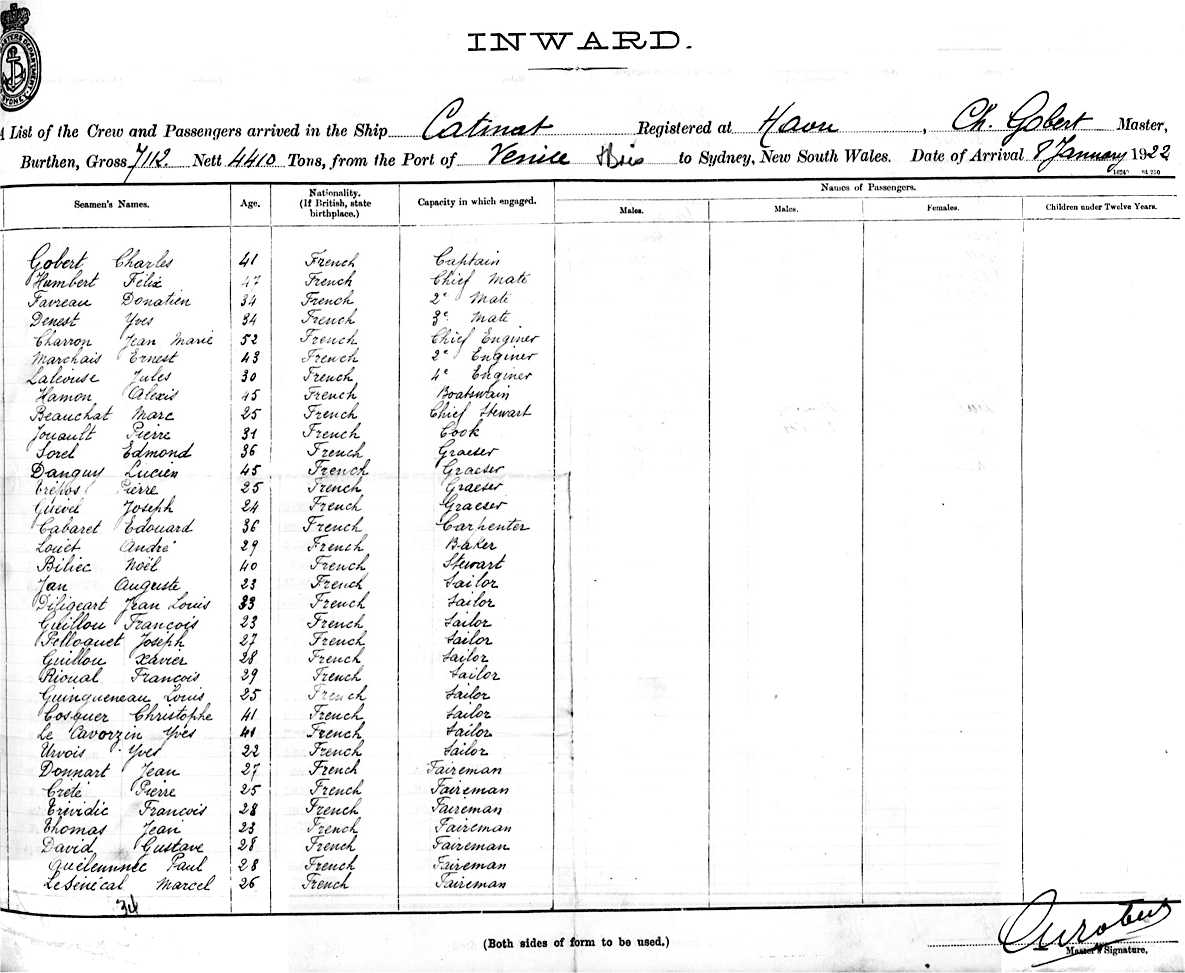 INWARD.
SYDNEY
A List of the Crew and Passengers arrived in the Ship Catinat Registered at Havre, Ch. Gobert Master,
Burthen, Gross 7112. Nett 4410 Tons, from the Port of Venise to Sydney, New South Wales. Date of Arrival 8 January 1922
Names of Passengers.
Seamen's Names. Age. Nationality. (If British, state birthplace.) Capacity in which engaged. Males. Males. Females. Children under Twelve Years.
Gobert Charles 41 French Captain
Humbert Félix 47 French Chief Mate
Favreau Donatien 34 French 2e Mate
Denest Yves 34 French 3e Mate
Charron Jean Marie 52 French Chief Enginer
Marchais Ernest 43 French 2e Enginer
Laleouse Jules 30 French 4e Enginer
Hamon Alexis 45 French Boatswain
Beauchat Marc 25 French Chief Stewart
Jouault Pierre 31 French Cook
Sorel Edmond 36 French Graeser
Danguy Lucien 45 French Graeser
Crépos Pierre 25 French Graeser
Guevel Joseph 24 French Graeser
Cabaret Edouard 36 French Carpenter
Louet André 29 French Baker
Biliec Noël 40 French Stewart
Jan Auguste 23 French Sailor
Diligeart Jean Louis 33 French Sailor
Guillou François 23 French Sailor
Pelloquet Joseph 27 French Sailor
Guillou Xavier 28 French Sailor
Rioual François 29 French Sailor
Guinqueneau Louis 25 French Sailor
Cosquer Christophe 41 French Sailor
Le Cavorzin Yves 41 French Sailor
Urvois Yves 22 French Sailor
Donnart Jean 27 French Faireman
Crété Pierre 25 French Faireman
Trividic François 28 French Faireman
Thomas Jean 23 French Faireman
David Gustave 28 French Faireman
Paul 28 French Faireman
Le Sénécal Marcel 26 French Faireman
34
(Both sides of form to be used.)
Master's Signature.